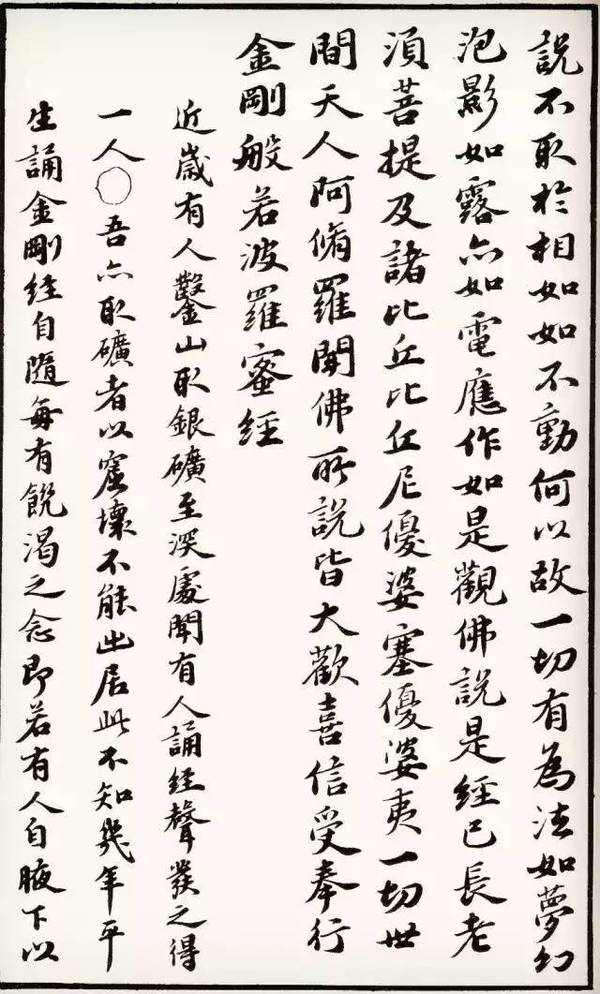 說不取於相如如不動何以故一切有為法如夢幻
泡影如露亦如電應作如是觀佛說是經已長老
須菩提及諸比丘比丘尼優婆塞優婆夷一切世
間天人阿脩羅聞佛所說皆大歡喜信受奉行
金剛般若波羅蜜經
近歲有人鑿山取銀礦至深處聞有人誦經聲發之得
一人○吾亦取礦者以窟壞不能出居此不知幾年平
生誦金剛經自隨每有飢渴之念即若有人自腋下以